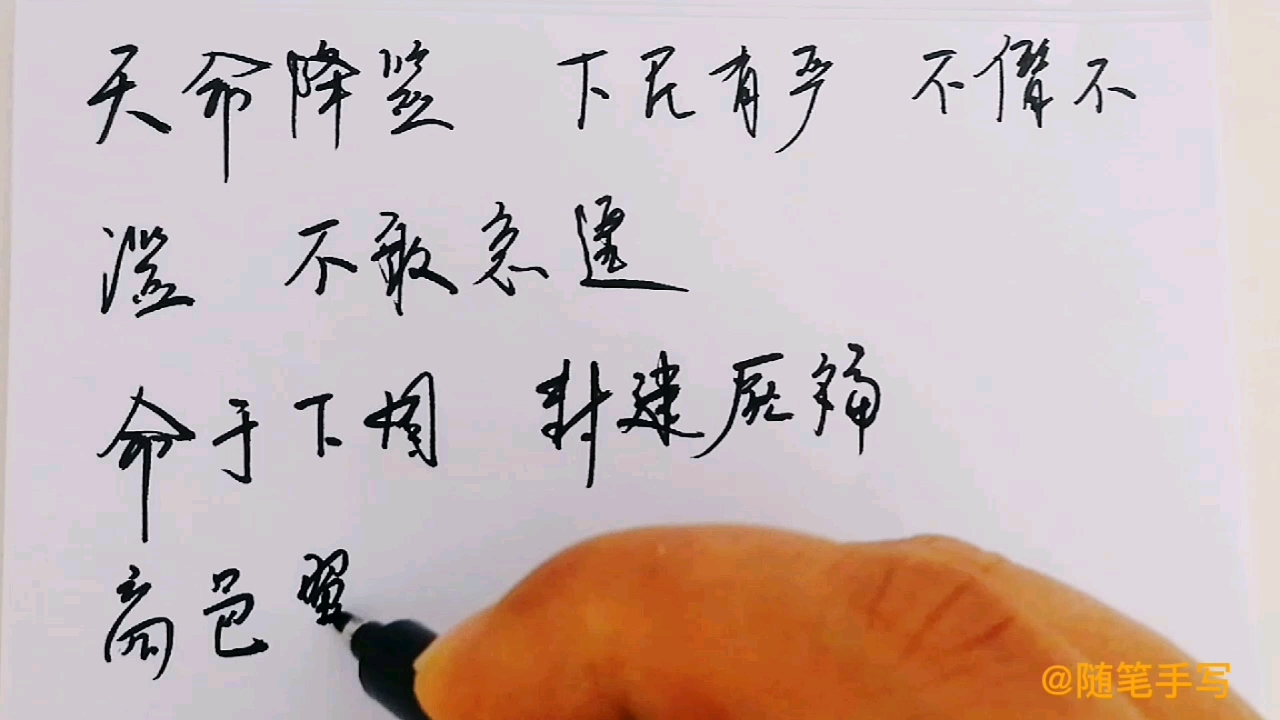 天命降监 下民有严 不僭不
滥 不敢怠遑
命于下国 封建厥福
商邑
@随笔手写